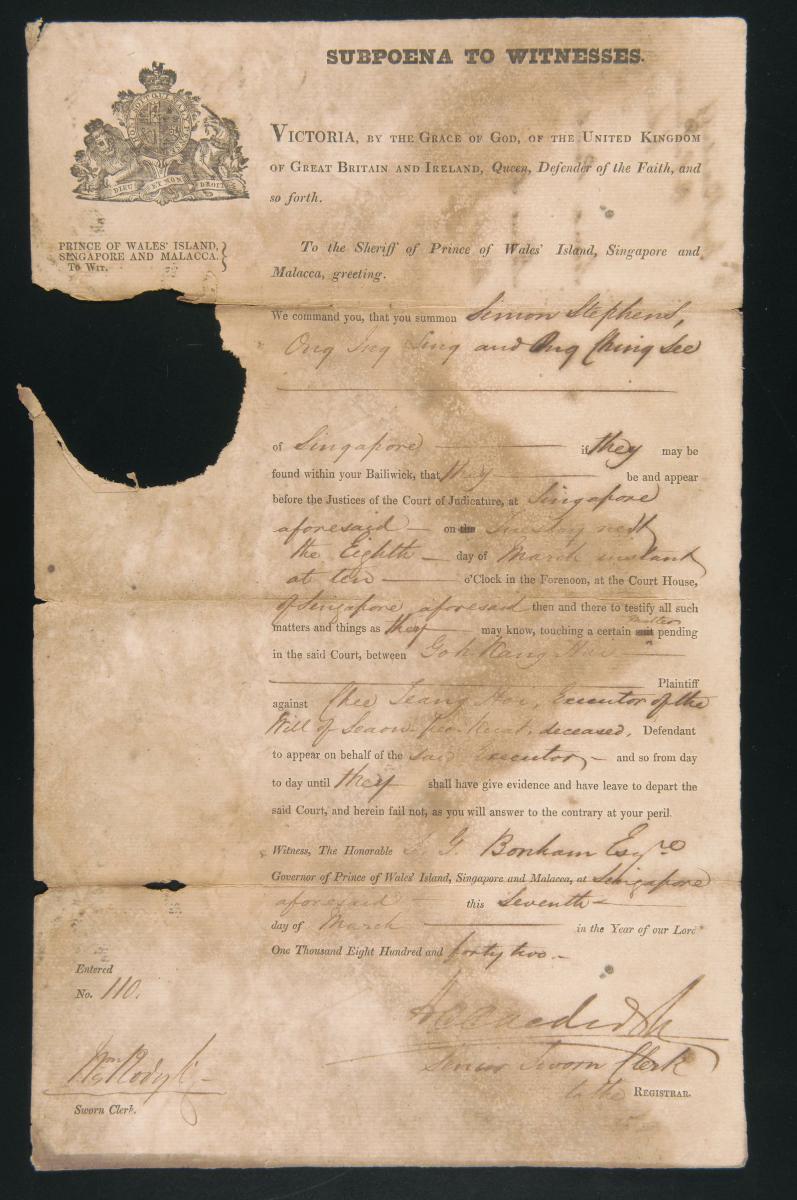 SUBPOENA TO WITNESSES.
HONI SOIT QUI MAL Y PENSE
DIEU ET MON DROIT
PRINCE OF WALES' ISLAND,
SINGAPORE AND MALACCA.
To Wit.
VICTORIA, BY THE GRACE OF GOD, OF THE UNITED KINGDOM
OF GREAT BRITAIN AND IRELAND, Queen, Defender of the Faith, and
so forth.
To the Sheriff of Prince of Wales' Island, Singapore and
Malacca, greeting.
We command you, that you summon Simon Stephens,
Ong Ling and Ong Ching See
of Singapore if they may be
found within your Bailiwick, that they be and appear
before the Justices of the Court of Judicature, at Singapore
aforesaid on the Tuesday next
the Eighth day of March instant
at ten o'Clock in the Forenoon, at the Court House,
of Singapore aforesaid then and there to testify all such
matters and things as they may know, touching a certain suit matter pending
in the said Court, between Goh Kang
Plaintiff
against Chee Teang Hoi, Executor of the
Will of deceased, Defendant
to appear on behalf of the said Executor and so from day
to day until they shall have give evidence and have leave to depart the
said Court, and herein fail not, as you will answer to the contrary at your peril.
Witness, The Honorable S. G. Bonham Esqre
Governor of Prince of Wales' Island, Singapore and Malacca, at Singapore
aforesaid this Seventh
day of March in the Year of our Lord
One Thousand Eight Hundred and forty two.
Entered
No. 110.
Senior Sworn Clerk
to the REGISTRAR.
Sworn Clerk.